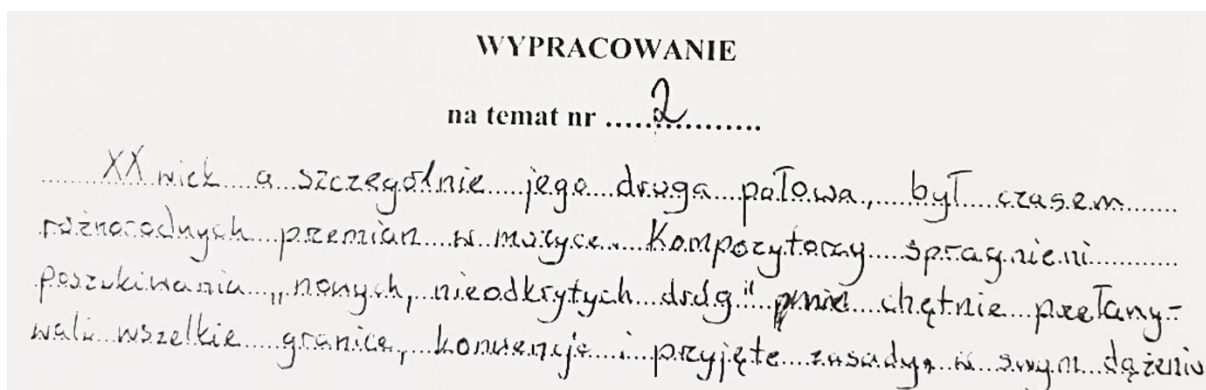 WYPRACOWANIE
na temat nr .....2..............
XX wiek a szczególnie jego druga połowa, był czasem
różnorodnych przemian w muzyce. Kompozytorzy spragnieni
poszukiwania „nowych, nieodkrytych dróg" chętnie przełamy-
wali wszelkie granice, konwencje i przyjęte zasady, w swym dążeniu